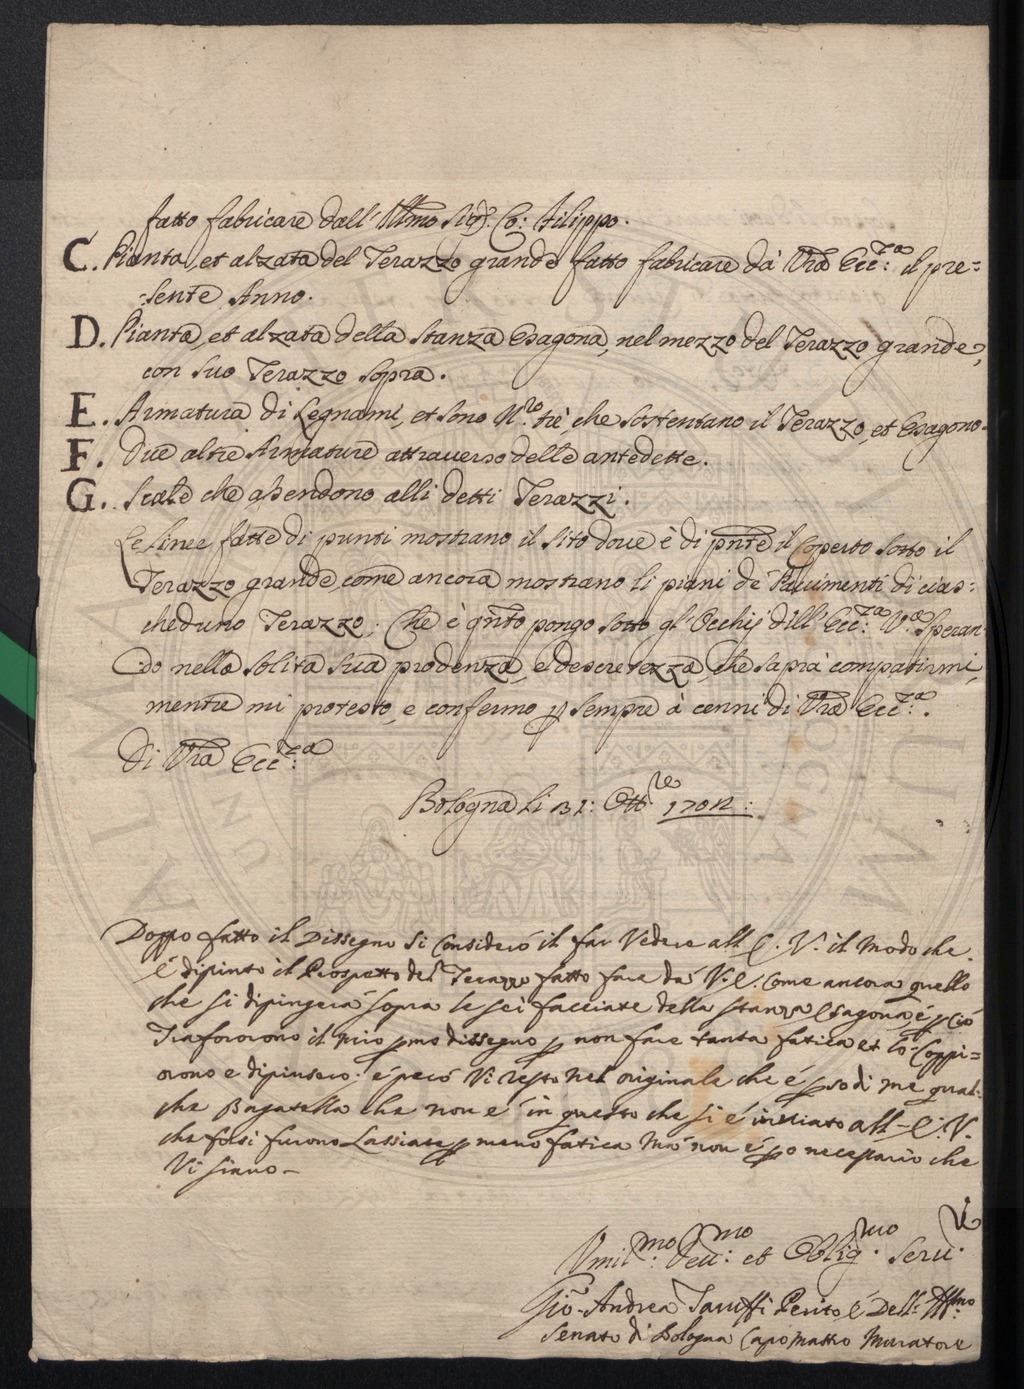 fatto fabricare dall' Illmo Sigr. Co: Filippo.
C. Pianta, et alzata del Terazzo grande fatto fabricare dà Vra Ecc:za il pre=
sente Anno.
D. Pianta, et alzata della stanza Esagona, nel mezzo del Terazzo grande,
con suo Terazzo sopra.
E. Armatura di Legnami, et sono Nro. trè che sostentano il Terazzo, et Esagono.
F. Due altre Armature attraverso delle antedette.
G. Scale che asendono alli detti Terazzi.
Le linee fatte di punti mostrano il sito doue è di pnte il Coperto sotto il
Terazzo grande, come ancora mostrano li piani de Pauimenti di cias=
cheduno Terazzo; Che è qnto pongo sotto gl' Occhij dell' Ecc:za Va. Speran
do nella solita sua prodenza, e descretezza, che saprà compatirmi,
mentre mi protesto, e confermo p sempre à cenni di Vra Ecc:za.
Di Vra Ecc:za
Bologna li 31: Ottre 1702:
Doppo fatto il Dissegno si Considerò il far Vedere all E. V. il Modo che
é dipinto il Prospetto del Terazzo fatto fare da V. E. Come ancora quello
che si dipingerà sopra le sei facciate della stanza Esagona, é p Ciò
Traforono il mio pmo dissegno p non fare tanta fatica et lo Coppi=
orono e dipinsero; é però Vi resto nel originale che é pso di me qual=
che Bagatella che non é in questo che si é inuiato all E. V.
che forsi furono Lassiate p meno fatica Ma non é po necessario che
Vi siano –
Vmil:mo Deu:mo et Oblig:mo Seru:
Gio: Andrea Taruffi Perito é Dell' Illmo
Senato di Bologna Capo Mastro Muratore